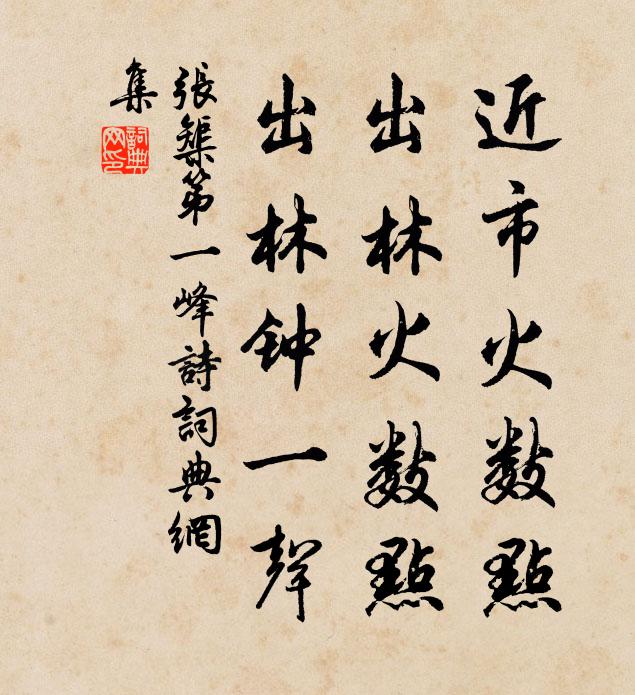 近市火数點
出林火数點
出林钟一聲
張榘第一峰詩詞典網
集
詞典网印